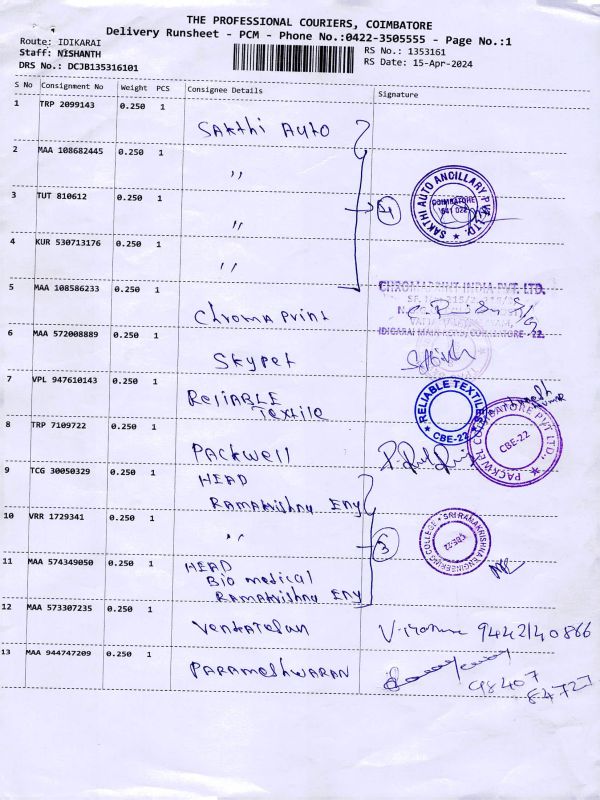 THE PROFESSIONAL COURIERS, COIMBATORE
Delivery Runsheet - PCM - Phone No.:0422-3505555 - Page No.:1
Route: IDIKARAI
RS No.: 1353161
Staff: NISHANTH
RS Date: 15-Apr-2024
DRS No.: DCJB135316101
S No Consignment No Weight PCS Consignee Details Signature
1 TRP 2099143 0.250 1
Sakthi Auto
2 MAA 108682445 0.250 1
"
3 TUT 810612 0.250 1
"
4 KUR 530713176 0.250 1
"
4
SAKTHI AUTO ANCILLARY PVT. LTD.
COIMBATORE
641 022
5 MAA 108586233 0.250 1
Chromaprint
CHROMAPRINT INDIA PVT. LTD.
6 MAA 572008889 0.250 1
Skypet
7 VPL 947610143 0.250 1
Reliable
Textile
RELIABLE TEXTILE
CBE-22
8 TRP 7109722 0.250 1
Packwell
PACKWEL COIMBATORE PVT LTD.,
CBE-22
9 TCG 30050329 0.250 1
HEAD
Ramakrishna Eny
10 VRR 1729341 0.250 1
"
3
SRI RAMAKRISHNA ENGINEERING COLLEGE
CBE-22
11 MAA 574349050 0.250 1
HEAD
Bio medical
Ramakrishna Eny
12 MAA 573307235 0.250 1
Venkatesan
9442140866
13 MAA 944747209 0.250 1
PARAMESHWARAN
98407
84727